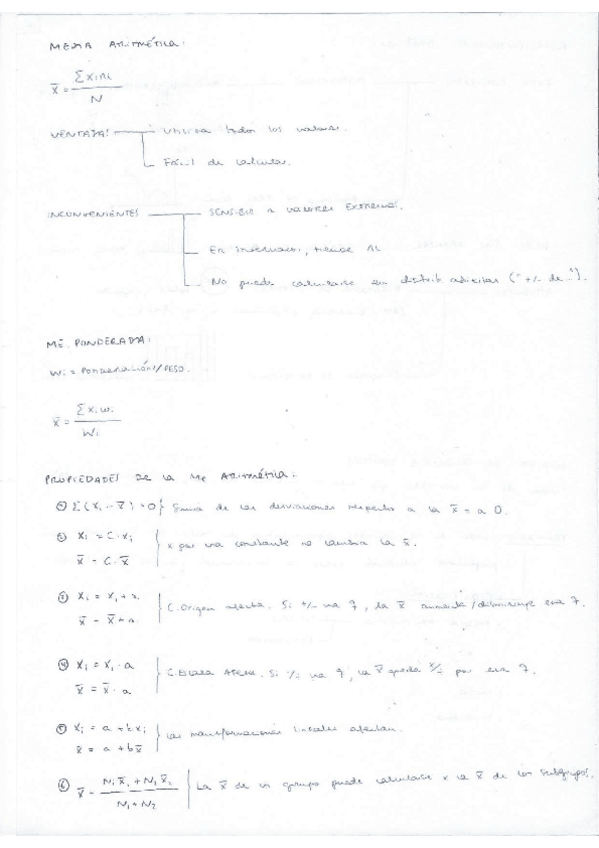 MEDIA ARITMÉTICA:
x̄ = Σxini / N
VENTAJAS: Utiliza todos los valores.
Fácil de calcular.
INCONVENIENTES SENSIBLE A VALORES EXTREMOS.
En intervalos, tiende al
No puede calcularse en distrib. abiertas ("+/- de ...").
ME. PONDERADA:
Wi = PONDERACIÓN/PESO.
x̄ = Σxiwi / Wi
PROPIEDADES DE LA Me ARITMÉTICA:
① Σ(xi - x̄) = 0 } Suma de las desviaciones respecto a la x̄ = a 0.
② xi = C·xi
x̄ = C·x̄ } x por una constante no cambia la x̄.
③ xi = xi +
x̄ = x̄ + } C. Origen afecta. Si +/- una ?, la x̄ aumenta/disminuye esa ?.
④ xi = xi · a
x̄ = x̄ · a } C. Escala Afecta. Si una ?, la x̄ queda por esa ?.
⑤ xi = a + bxi
x̄ = a + bx̄ } las transformaciones lineales afectan.
⑥ x̄ = N1x̄1 + N2x̄2 / N1 + N2 } La x̄ de un grupo puede calcularse x la x̄ de los subgrupos.